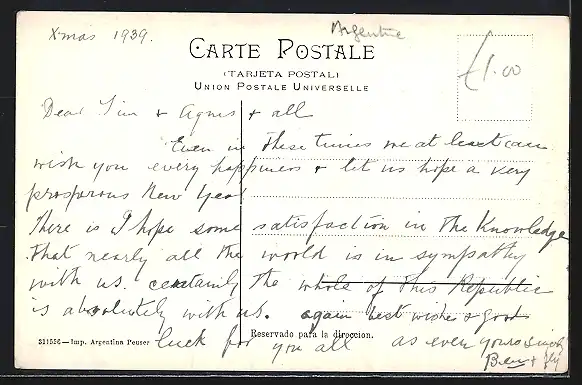 Xmas 1939.
Argentine
CARTE POSTALE
(TARJETA POSTAL)
UNION POSTALE UNIVERSELLE
£1.00
Dear Tim & Agnes & all
Even in these times we at least can
wish you every happiness & let us hope a very
prosperous New Year
There is I hope some satisfaction in the Knowledge
that nearly all the world is in sympathy
with us. certainly the whole of this Republic
is absolutely with us. again best wishes & good
luck for you all as ever yours
Reservado para la direccion.
311556—Imp. Argentina Peuser